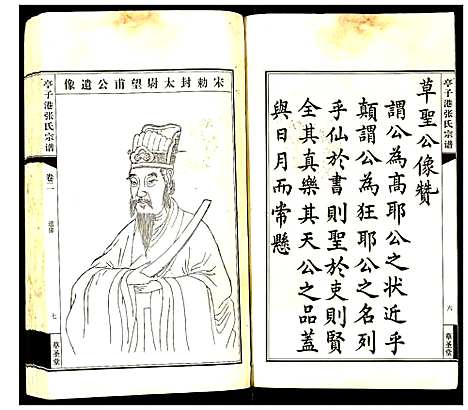 草聖公像贊
謂公為高耶公之狀近乎
顛謂公為狂耶公之名列
乎仙於書則聖於吏則賢
全其真樂其天公之品蓋
與日月而常懸
亭子港张氏宗谱
六
草圣堂
宋勅封太尉望甫公遺像
亭子港张氏宗谱
卷二
遗像
七
草圣堂